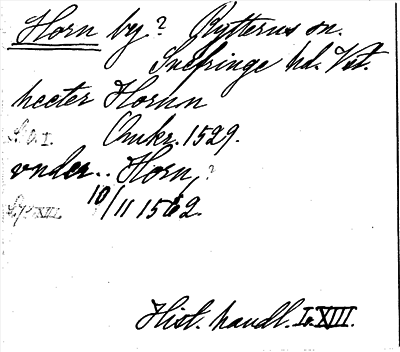 Horn by? Rytterns sn.
Snefringe hd. Vst.
heeter Hornn
Omkr. 1529.
vnder.. Horn,?
10/11 1562
Hist. handl. L. XIII.